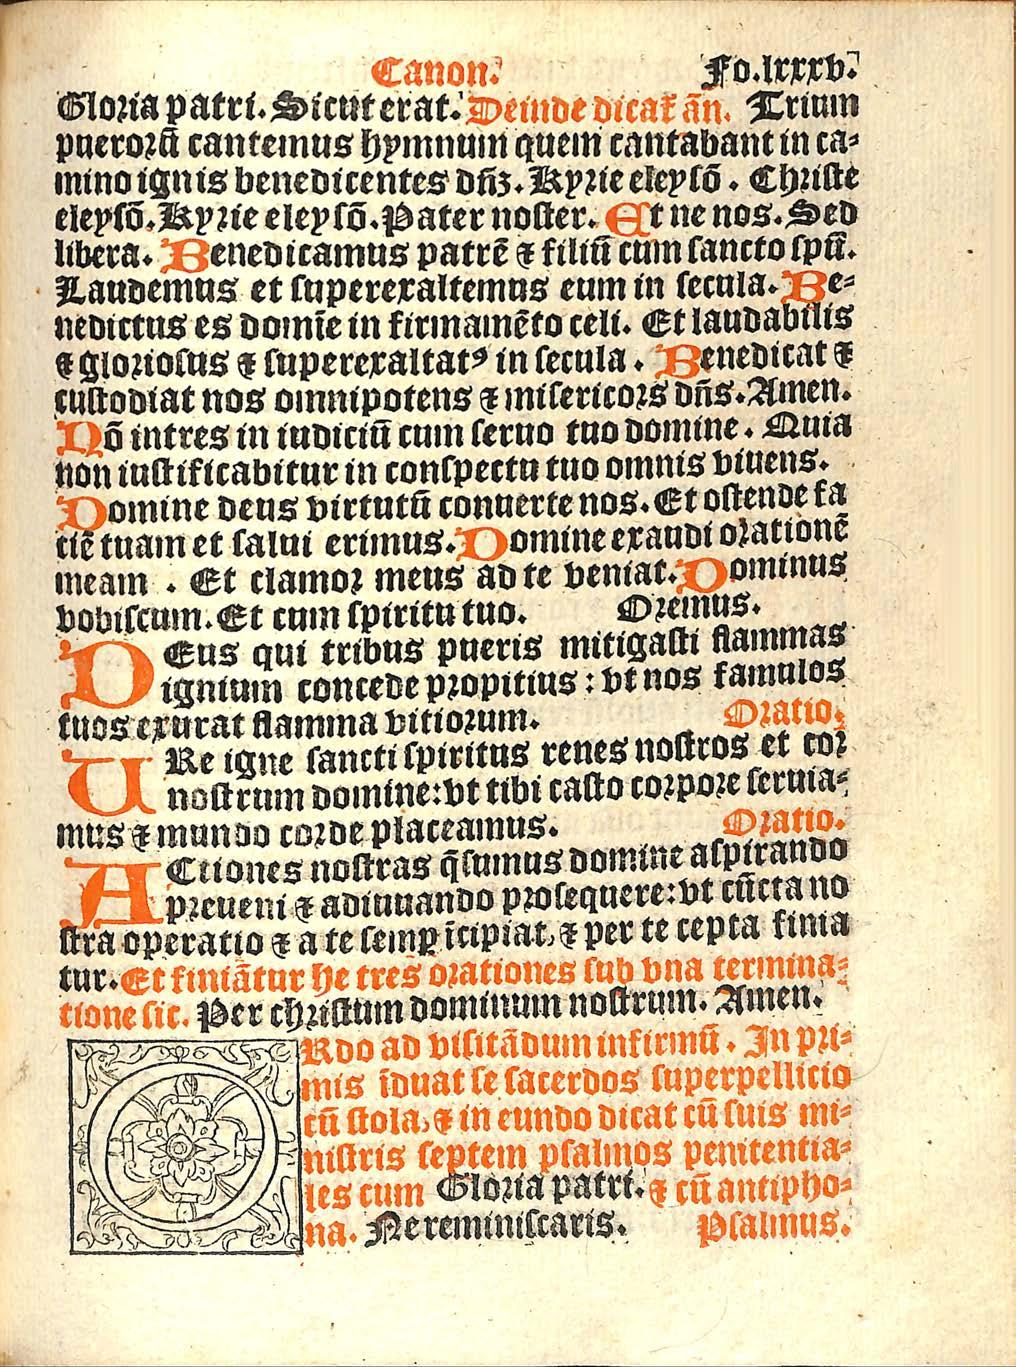 Canon. Fo.lxxxv.
Gloria patri. Sicut erat. Deinde dicat̄ ān. Trium
puerorū cantemus hymnum quem cantabant in ca⸗
mino ignis benedicentes dn̄ꝫ. Kyrie eleysō. Christe
eleysō. Kyrie eleysō. Pater noster. Et ne nos. Sed
libera. Benedicamus patrē ⁊ filiū cum sancto spū.
Laudemus et superexaltemus eum in secula. Be⸗
nedictus es domīe in firmamēto celi. Et laudabilis
⁊ gloriosus ⁊ superexaltatꝰ in secula. Benedicat ⁊
custodiat nos omnipotens ⁊ misericors dn̄s. Amen.
Nō intres in iudiciū cum seruo tuo domine. Quia
non iustificabitur in conspectu tuo omnis viuens.
Domine deus virtutū conuerte nos. Et ostende fa
ciē tuam et salui erimus. Domine exaudi orationē
meam. Et clamor meus ad te veniat. Dominus
vobiscum. Et cum spiritu tuo. Oremus.
DEus qui tribus pueris mitigasti flammas
ignium concede propitius: vt nos famulos
tuos exurat flamma vitiorum. Oratio.
URe igne sancti spiritus renes nostros et cor
nostrum domine: vt tibi casto corpore seruia⸗
mus ⁊ mundo corde placeamus. Oratio.
ACtiones nostras q̄sumus domine aspirando
preueni ⁊ adiuuando prosequere: vt cūcta no
stra operatio ⁊ a te semꝑ īcipiat, ⁊ per te cepta finia
tur. Et finiātur he tres orationes sub vna termina⸗
tione sic. Per christum dominum nostrum. Amen.
ORdo ad visitādum infirmū. In pri⸗
mis īduat se sacerdos superpellicio
cū stola, ⁊ in eundo dicat cū suis mi⸗
nistris septem psalmos penitentia⸗
les cum Gloria patri. ⁊ cū antipho⸗
na. Ne reminiscaris. Psalmus.